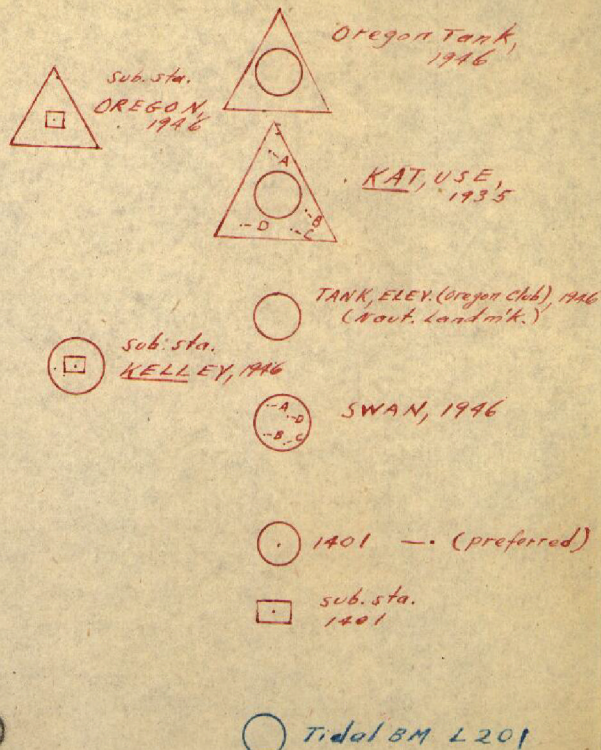 Oregon Tank,
1946
sub. sta.
OREGON,
1946
A
B
C
D
KAT, USE,
1935
TANK, ELEV. (Oregon Club), 1946
(Naut. Landm'k.)
sub. sta.
KELLEY, 1946
A
D
B
C
SWAN, 1946
1401 —· (preferred)
sub. sta.
1401
Tidal BM L 201